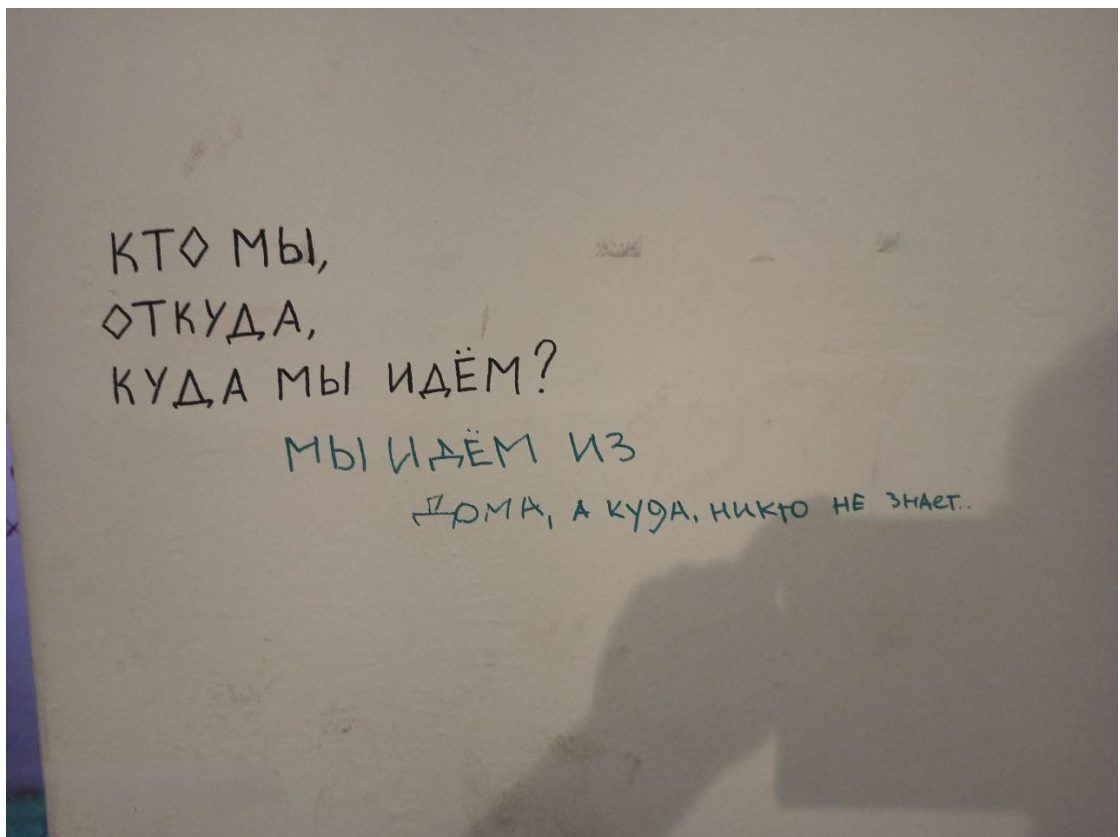 КТО МЫ,
ОТКУДА,
КУДА МЫ ИДЁМ?
МЫ ИДЁМ ИЗ
ДОМА, А КУДА, НИКТО НЕ ЗНАЕТ..